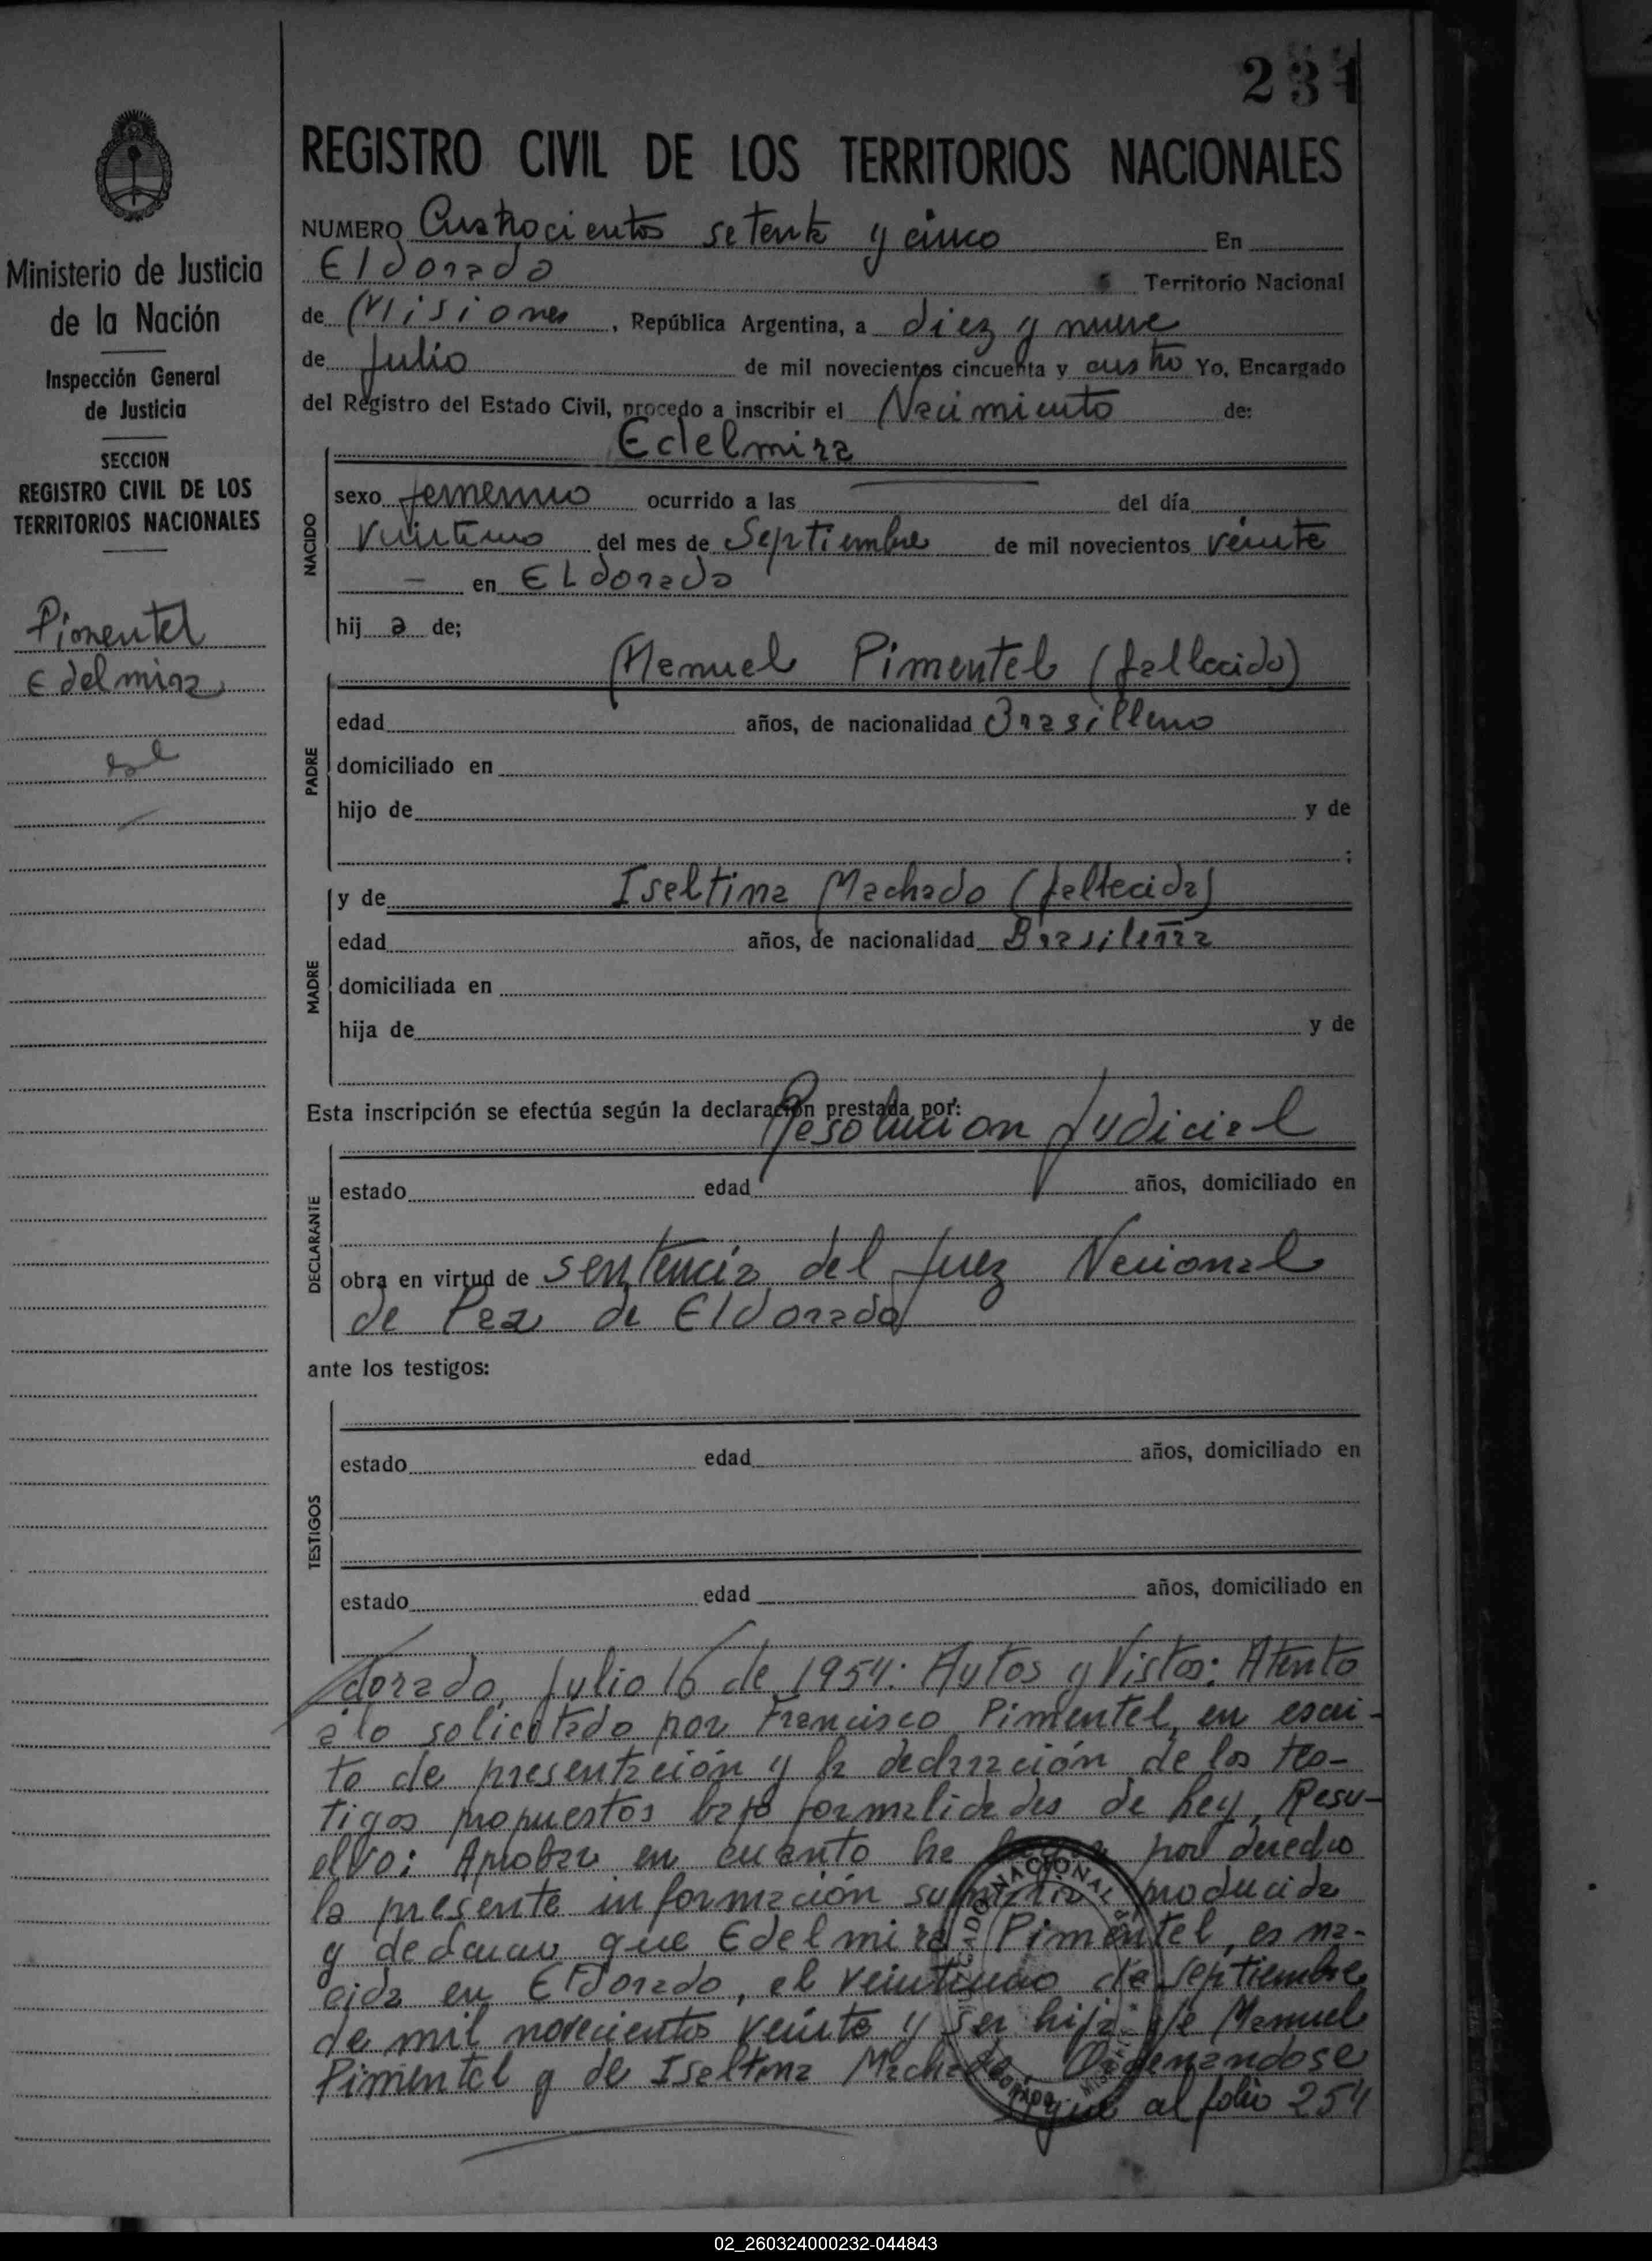 231
REGISTRO CIVIL DE LOS TERRITORIOS NACIONALES
NUMERO Cuatrocientos setenta y cinco En
Eldorado Territorio Nacional
de Misiones, República Argentina, a diez y nueve
de Julio de mil novecientos cincuenta y cuatro Yo, Encargado
del Registro del Estado Civil, procedo a inscribir el Nacimiento de:
Edelmira
NACIDO
sexo femenino ocurrido a las del día
veintiuno del mes de Septiembre de mil novecientos veinte
— en ELdorado
hij a de;
Manuel Pimentel (fallecido)
PADRE
edad años, de nacionalidad Brasilleno
domiciliado en
hijo de y de
;
y de Iseltina Machado (fallecida)
MADRE
edad años, de nacionalidad Brasileña
domiciliada en
hija de y de
Esta inscripción se efectúa según la declaración prestada por:
Resolucion Judicial
DECLARANTE
estado edad años, domiciliado en
obra en virtud de sentencia del Juez Nacional
de Paz de Eldorado
ante los testigos:
TESTIGOS
estado edad años, domiciliado en
estado edad años, domiciliado en
dorado, Julio 16 de 1954: Autos y Vistos: Atento
a lo solicitado por Francisco Pimentel, en escri-
to de presentación y la declaración de los tes-
tigos propuestos bajo formalidades de Ley, Resu-
elvo: Aprobar en cuanto ha lugar por derecho
la presente información sumaria producida
y declarar que Edelmira Pimentel, es na-
cida en Eldorado, el veintiuno de Septiembre
de mil novecientos veinte y ser hija de Manuel
Pimentel y de Iseltina Machado. Ordenandose
Sigue al folio 254
Ministerio de Justicia
de la Nación
Inspección General
de Justicia
SECCION
REGISTRO CIVIL DE LOS
TERRITORIOS NACIONALES
Pimentel
Edelmira
02_260324000232-044843